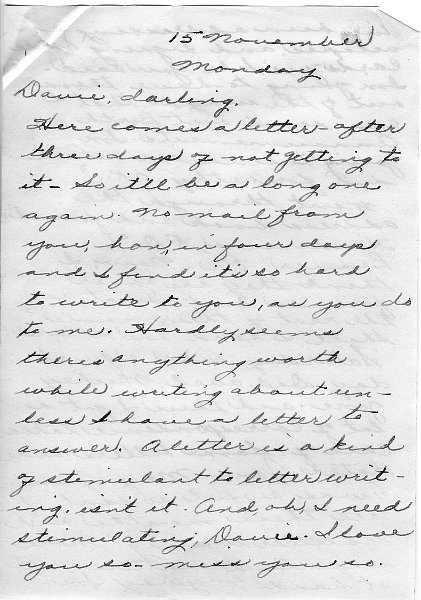 15 November
Monday
Davie, darling.
Here comes a letter - after
three days of not getting to
it - So it'll be a long one
again. No mail from
you, hon, in four days
and I find it's so hard
to write to you, as you do
to me. Hardly seems
there's anything worth
while writing about un-
less I have a letter to
answer. A letter is a kind
of stimulant to letter writ-
ing, isn't it. And oh, I need
stimulating, Davie. I love
you so - miss you so.